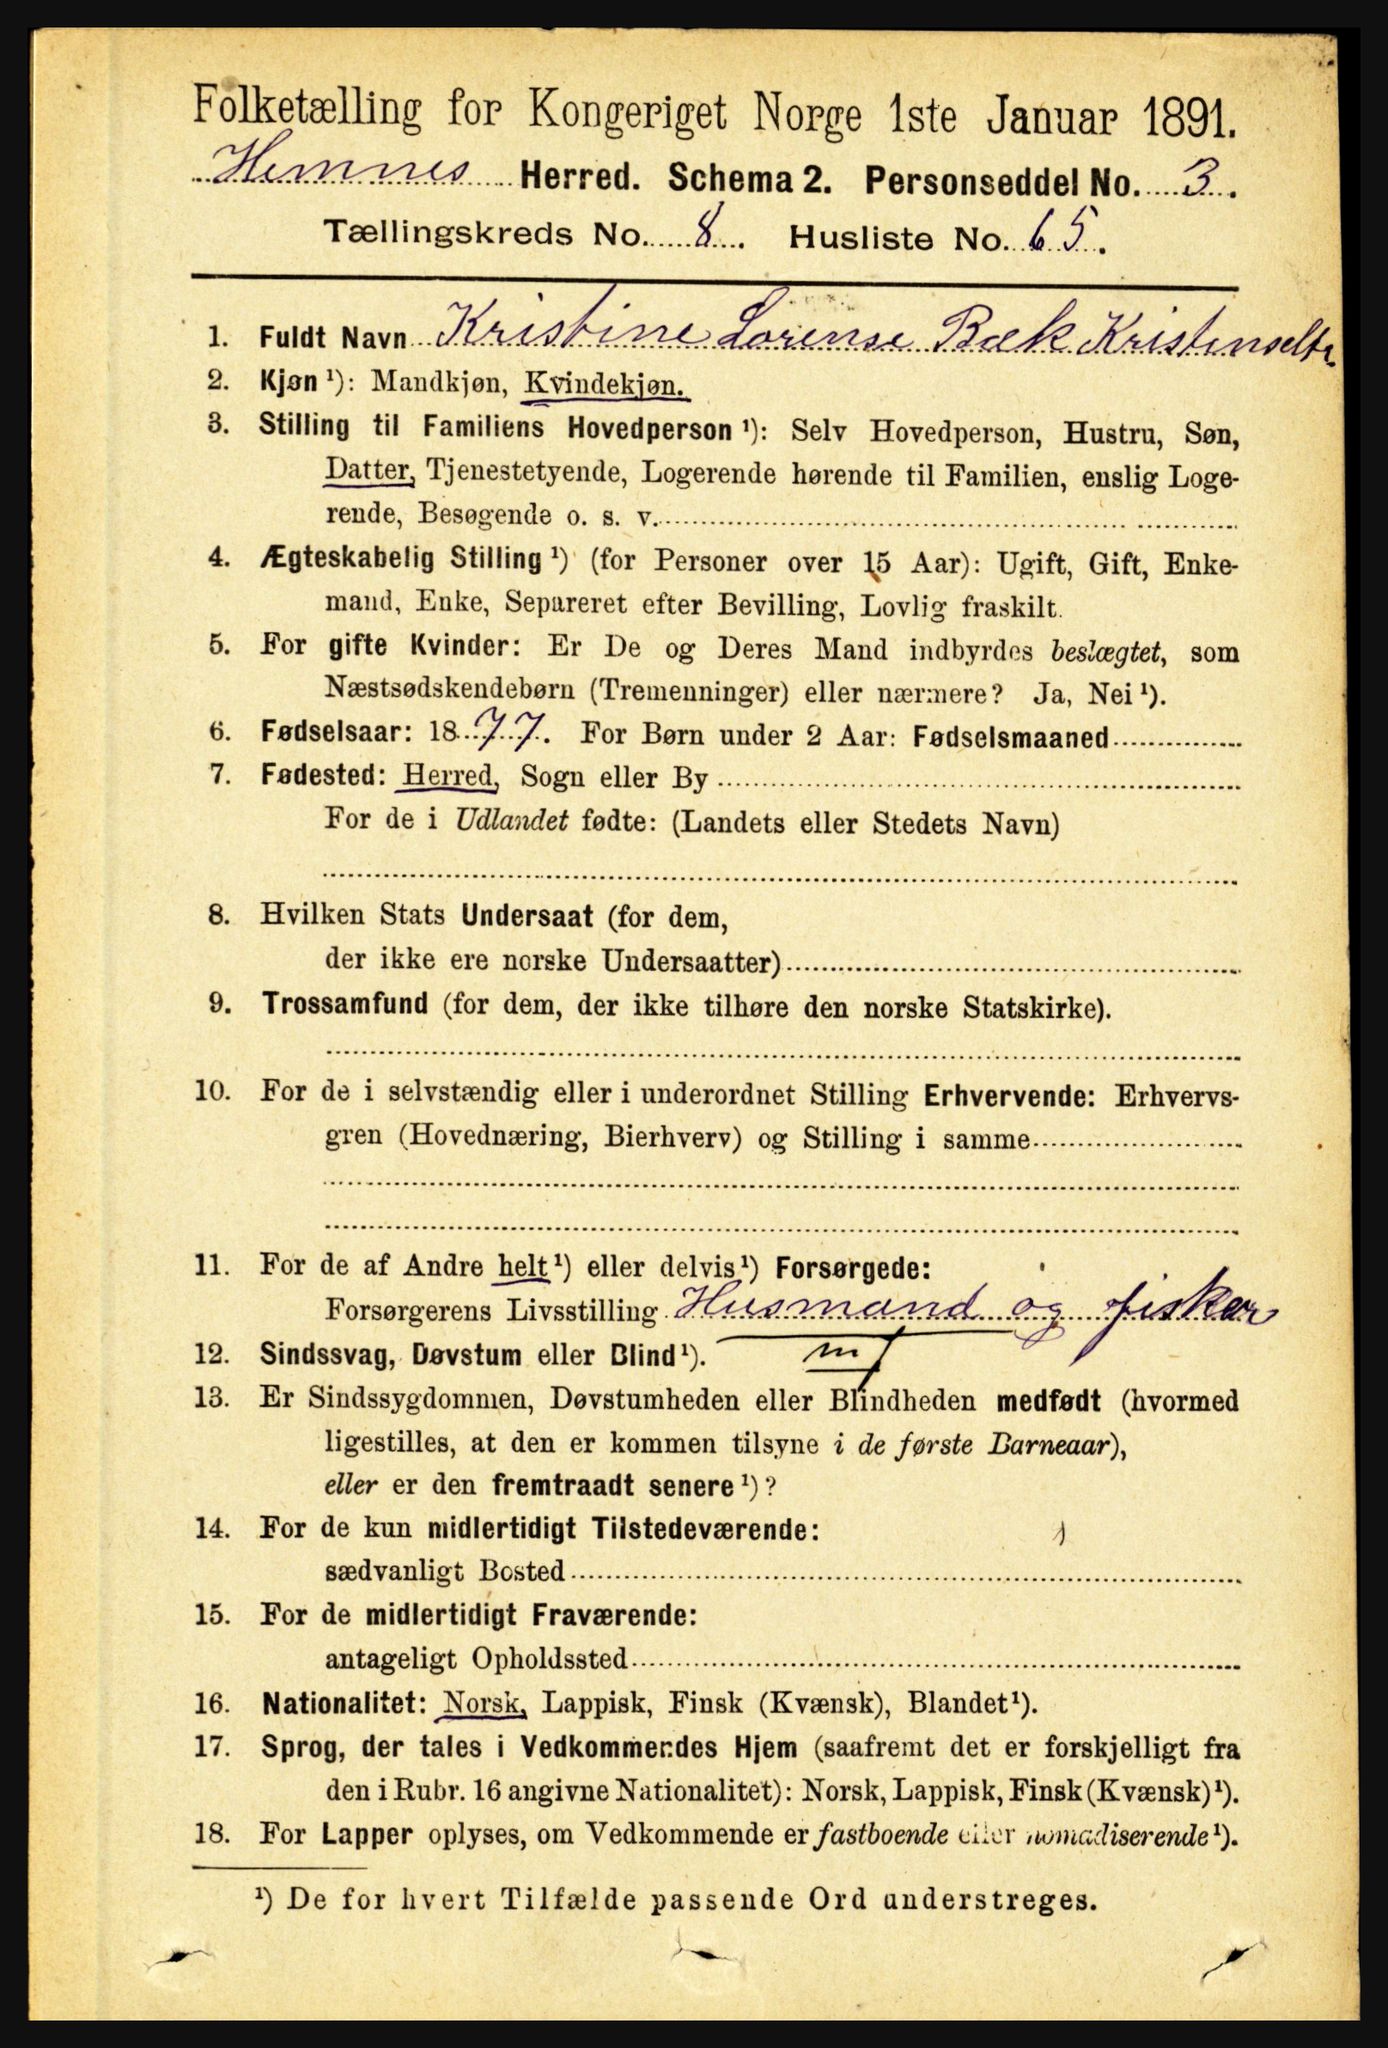 Folketælling for Kongeriget Norge 1ste Januar 1891.
Hemnes Herred. Schema 2. Personseddel No. 3.
Tællingskreds No. 8. Husliste No. 65.
1. Fuldt Navn Kristine Lorense Bæk Kristenseltr
2. Kjøn ¹): Mandkjøn, Kvindekjøn.
3. Stilling til Familiens Hovedperson ¹): Selv Hovedperson, Hustru, Søn,
Datter, Tjenestetyende, Logerende hørende til Familien, enslig Loge-
rende, Besøgende o. s. v.
4. Ægteskabelig Stilling ¹) (for Personer over 15 Aar): Ugift, Gift, Enke-
mand, Enke, Separeret efter Bevilling, Lovlig fraskilt.
5. For gifte Kvinder: Er De og Deres Mand indbyrdes beslægtet, som
Næstsødskendebørn (Tremenninger) eller nærmere? Ja, Nei ¹).
6. Fødselsaar: 1877. For Børn under 2 Aar: Fødselsmaaned
7. Fødested: Herred, Sogn eller By
For de i Udlandet fødte: (Landets eller Stedets Navn)
8. Hvilken Stats Undersaat (for dem,
der ikke ere norske Undersaatter)
9. Trossamfund (for dem, der ikke tilhøre den norske Statskirke).
10. For de i selvstændig eller i underordnet Stilling Erhvervende: Erhvervs-
gren (Hovednæring, Bierhverv) og Stilling i samme
11. For de af Andre helt ¹) eller delvis ¹) Forsørgede:
Forsørgerens Livsstilling Husmand og fisker
12. Sindssvag, Døvstum eller Blind ¹).
13. Er Sindssygdommen, Døvstumheden eller Blindheden medfødt (hvormed
ligestilles, at den er kommen tilsyne i de første Barneaar),
eller er den fremtraadt senere ¹)?
14. For de kun midlertidigt Tilstedeværende:
sædvanligt Bosted
15. For de midlertidigt Fraværende:
antageligt Opholdssted
16. Nationalitet: Norsk, Lappisk, Finsk (Kvænsk), Blandet ¹).
17. Sprog, der tales i Vedkommendes Hjem (saafremt det er forskjelligt fra
den i Rubr. 16 angivne Nationalitet): Norsk, Lappisk, Finsk (Kvænsk) ¹).
18. For Lapper oplyses, om Vedkommende er fastboende eller nomadiserende ¹).
¹) De for hvert Tilfælde passende Ord understreges.